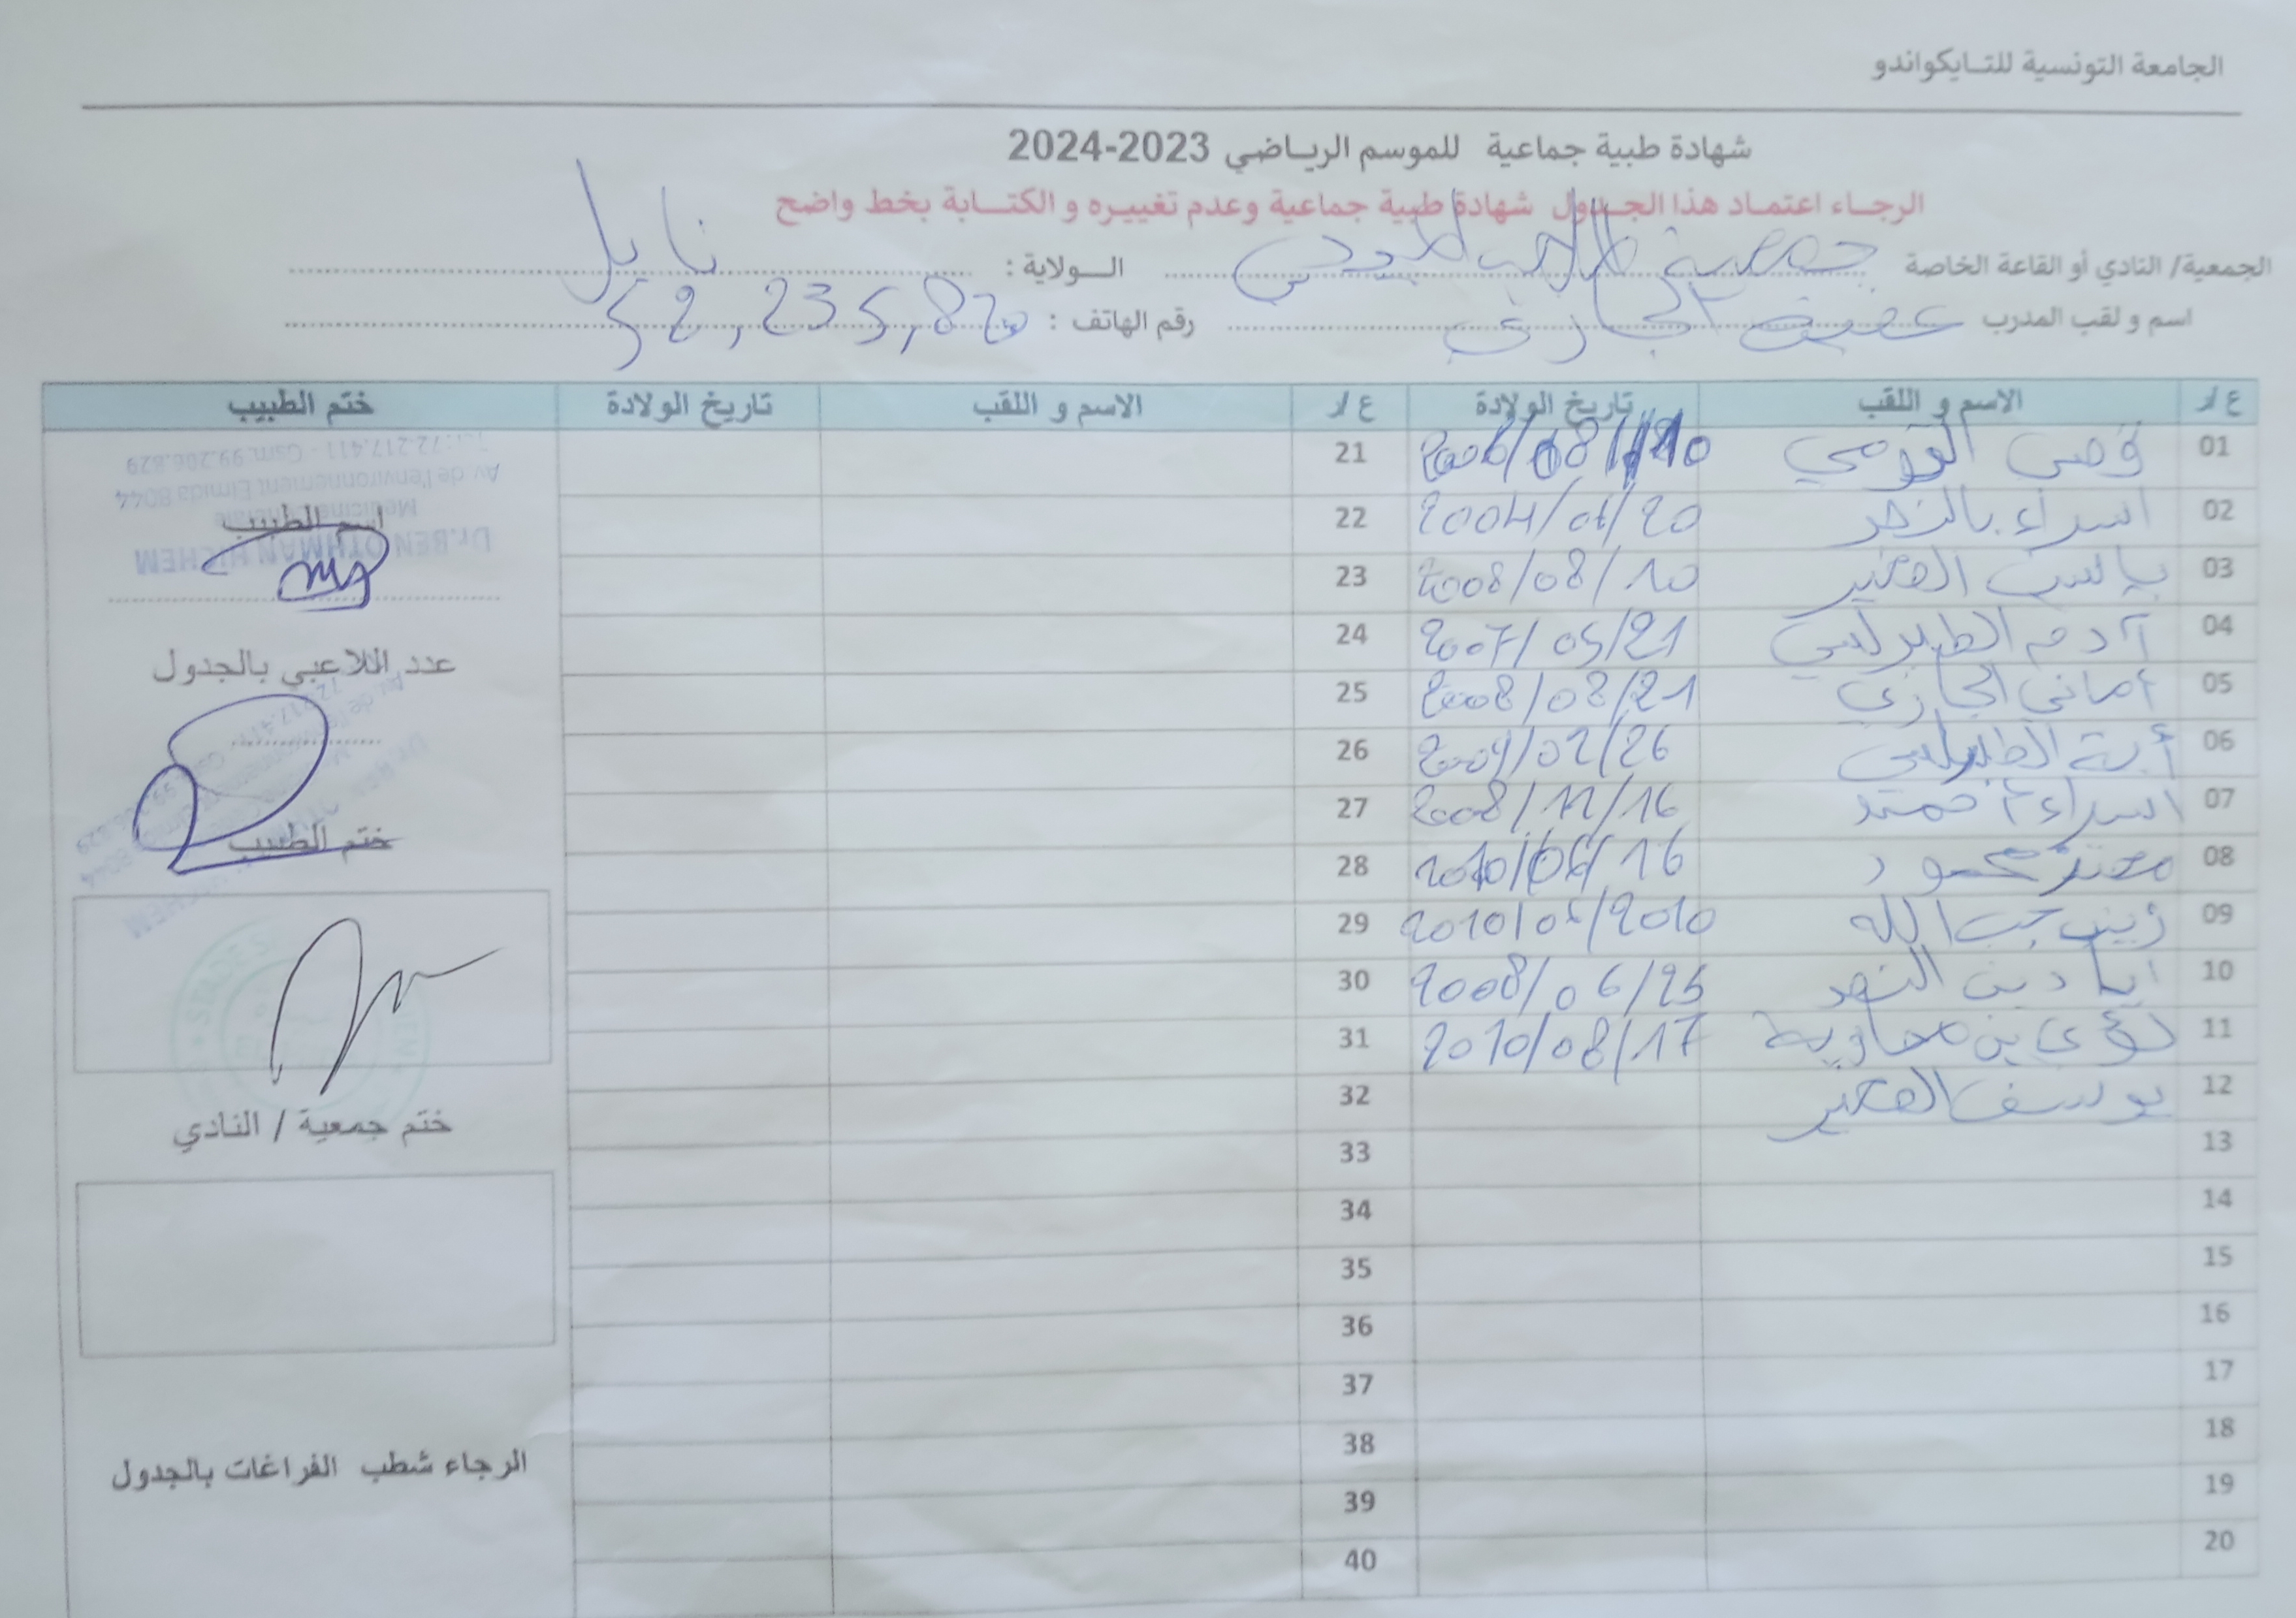 الجامعة التونسية للتايكواندو
شهادة طبية جماعية للموسم الرياضي 2023-2024
الرجاء اعتماد هذا الجدول شهادة طبية جماعية وعدم تغييره و الكتابة بخط واضح
الجمعية/ النادي أو القاعة الخاصة جمعية الولاية : نابل
اسم و لقب المدرب الجازي رقم الهاتف : 52,235,820
ع/ر الاسم و اللقب تاريخ الولادة ع/ر الاسم و اللقب تاريخ الولادة ختم الطبيب
01 قصي 21
02 اسراء 2004/01/20 22
03 ياسين الصغير 2008/08/10 23
04 آدم الطبرلسي 2007/05/21 24
05 أماني الجازي 2008/08/21 25
06 الطبرلسي 2009/02/26 26
07 اسراء 2008/12/16 27
08 معتز محمود 28
09 زينب جب الله 29
10 اياد بن النصر 2008/06/25 30
11 لؤي بن معاوية 2010/08/17 31
12 يوسف الصغير 32
13 33
14 34
15 35
16 36
17 37
18 38
19 39
20 40
Tel: 72.217.411 - Gsm. 99.206.829
Av. de l'environnement Elmida 8044
Dr. BEN OTHMAN HICHEM
اسم الطبيب
عدد اللاعبي بالجدول
ختم الطبيب
ختم جمعية / النادي
الرجاء شطب الفراغات بالجدول